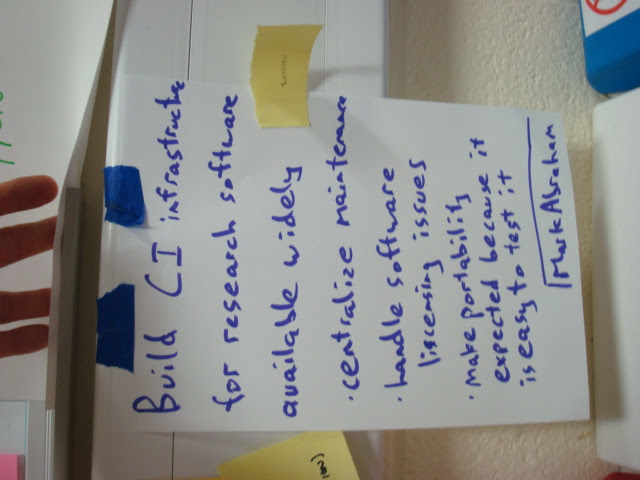 Build CI infrastructure
for research software
available widely
· centralize maintenance
· handle software
liscensing issues
· make portability
expected because it
is easy to test it
Mark Abraham